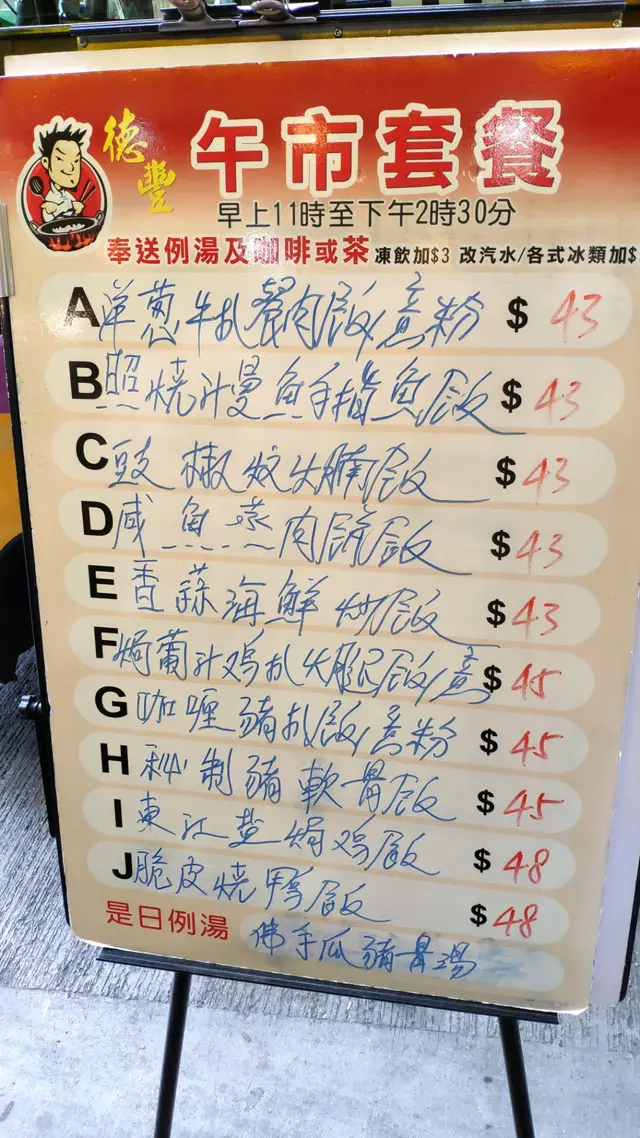 德豐 午市套餐
早上11時至下午2時30分
奉送例湯及咖啡或茶 凍飲加$3 改汽水/各式冰類加$
A 洋葱牛扒餐肉飯/意粉 $ 43
B 照燒汁鰻魚手指魚飯 $ 43
C 豉椒炆火腩飯 $ 43
D 咸魚蒸肉餅飯 $ 43
E 香蒜海鮮炒飯 $ 43
F 焗葡汁鸡扒火腿飯/意 $ 45
G 咖喱豬扒飯/意粉 $ 45
H 秘制豬軟骨飯 $ 45
I 東江盐焗鸡飯 $ 48
J 脆皮燒鴨飯 $ 48
是日例湯 佛手瓜豬骨湯